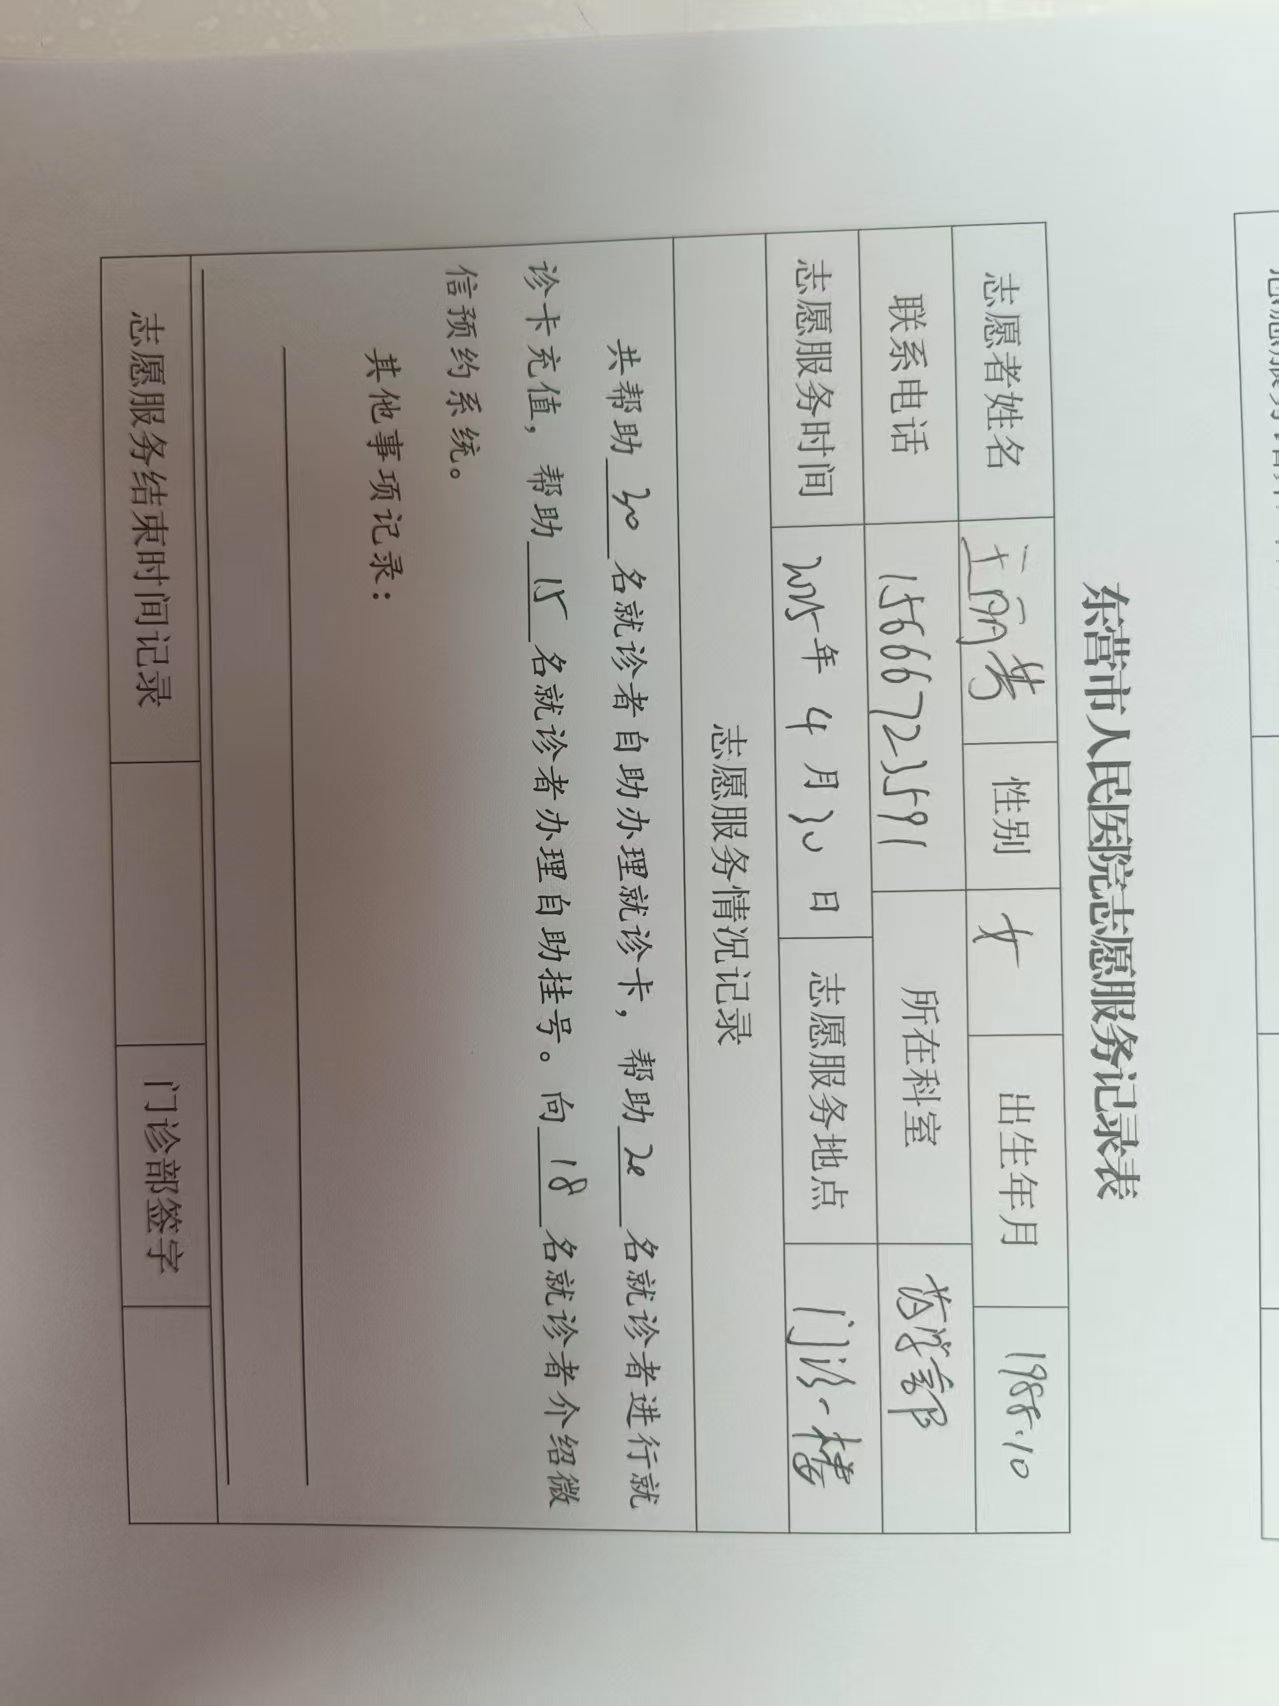 东营市人民医院志愿服务记录表
志愿者姓名 王丽芳 性别 女 出生年月 1988.10
联系电话 15666723591 所在科室 药学部
志愿服务时间 2025年 4 月 30 日 志愿服务地点 门诊一楼
志愿服务情况记录
共帮助 30 名就诊者自助办理就诊卡，帮助 20 名就诊者进行就
诊卡充值，帮助 15 名就诊者办理自助挂号。向 18 名就诊者介绍微
信预约系统。
其他事项记录：
志愿服务结束时间记录 门诊部签字